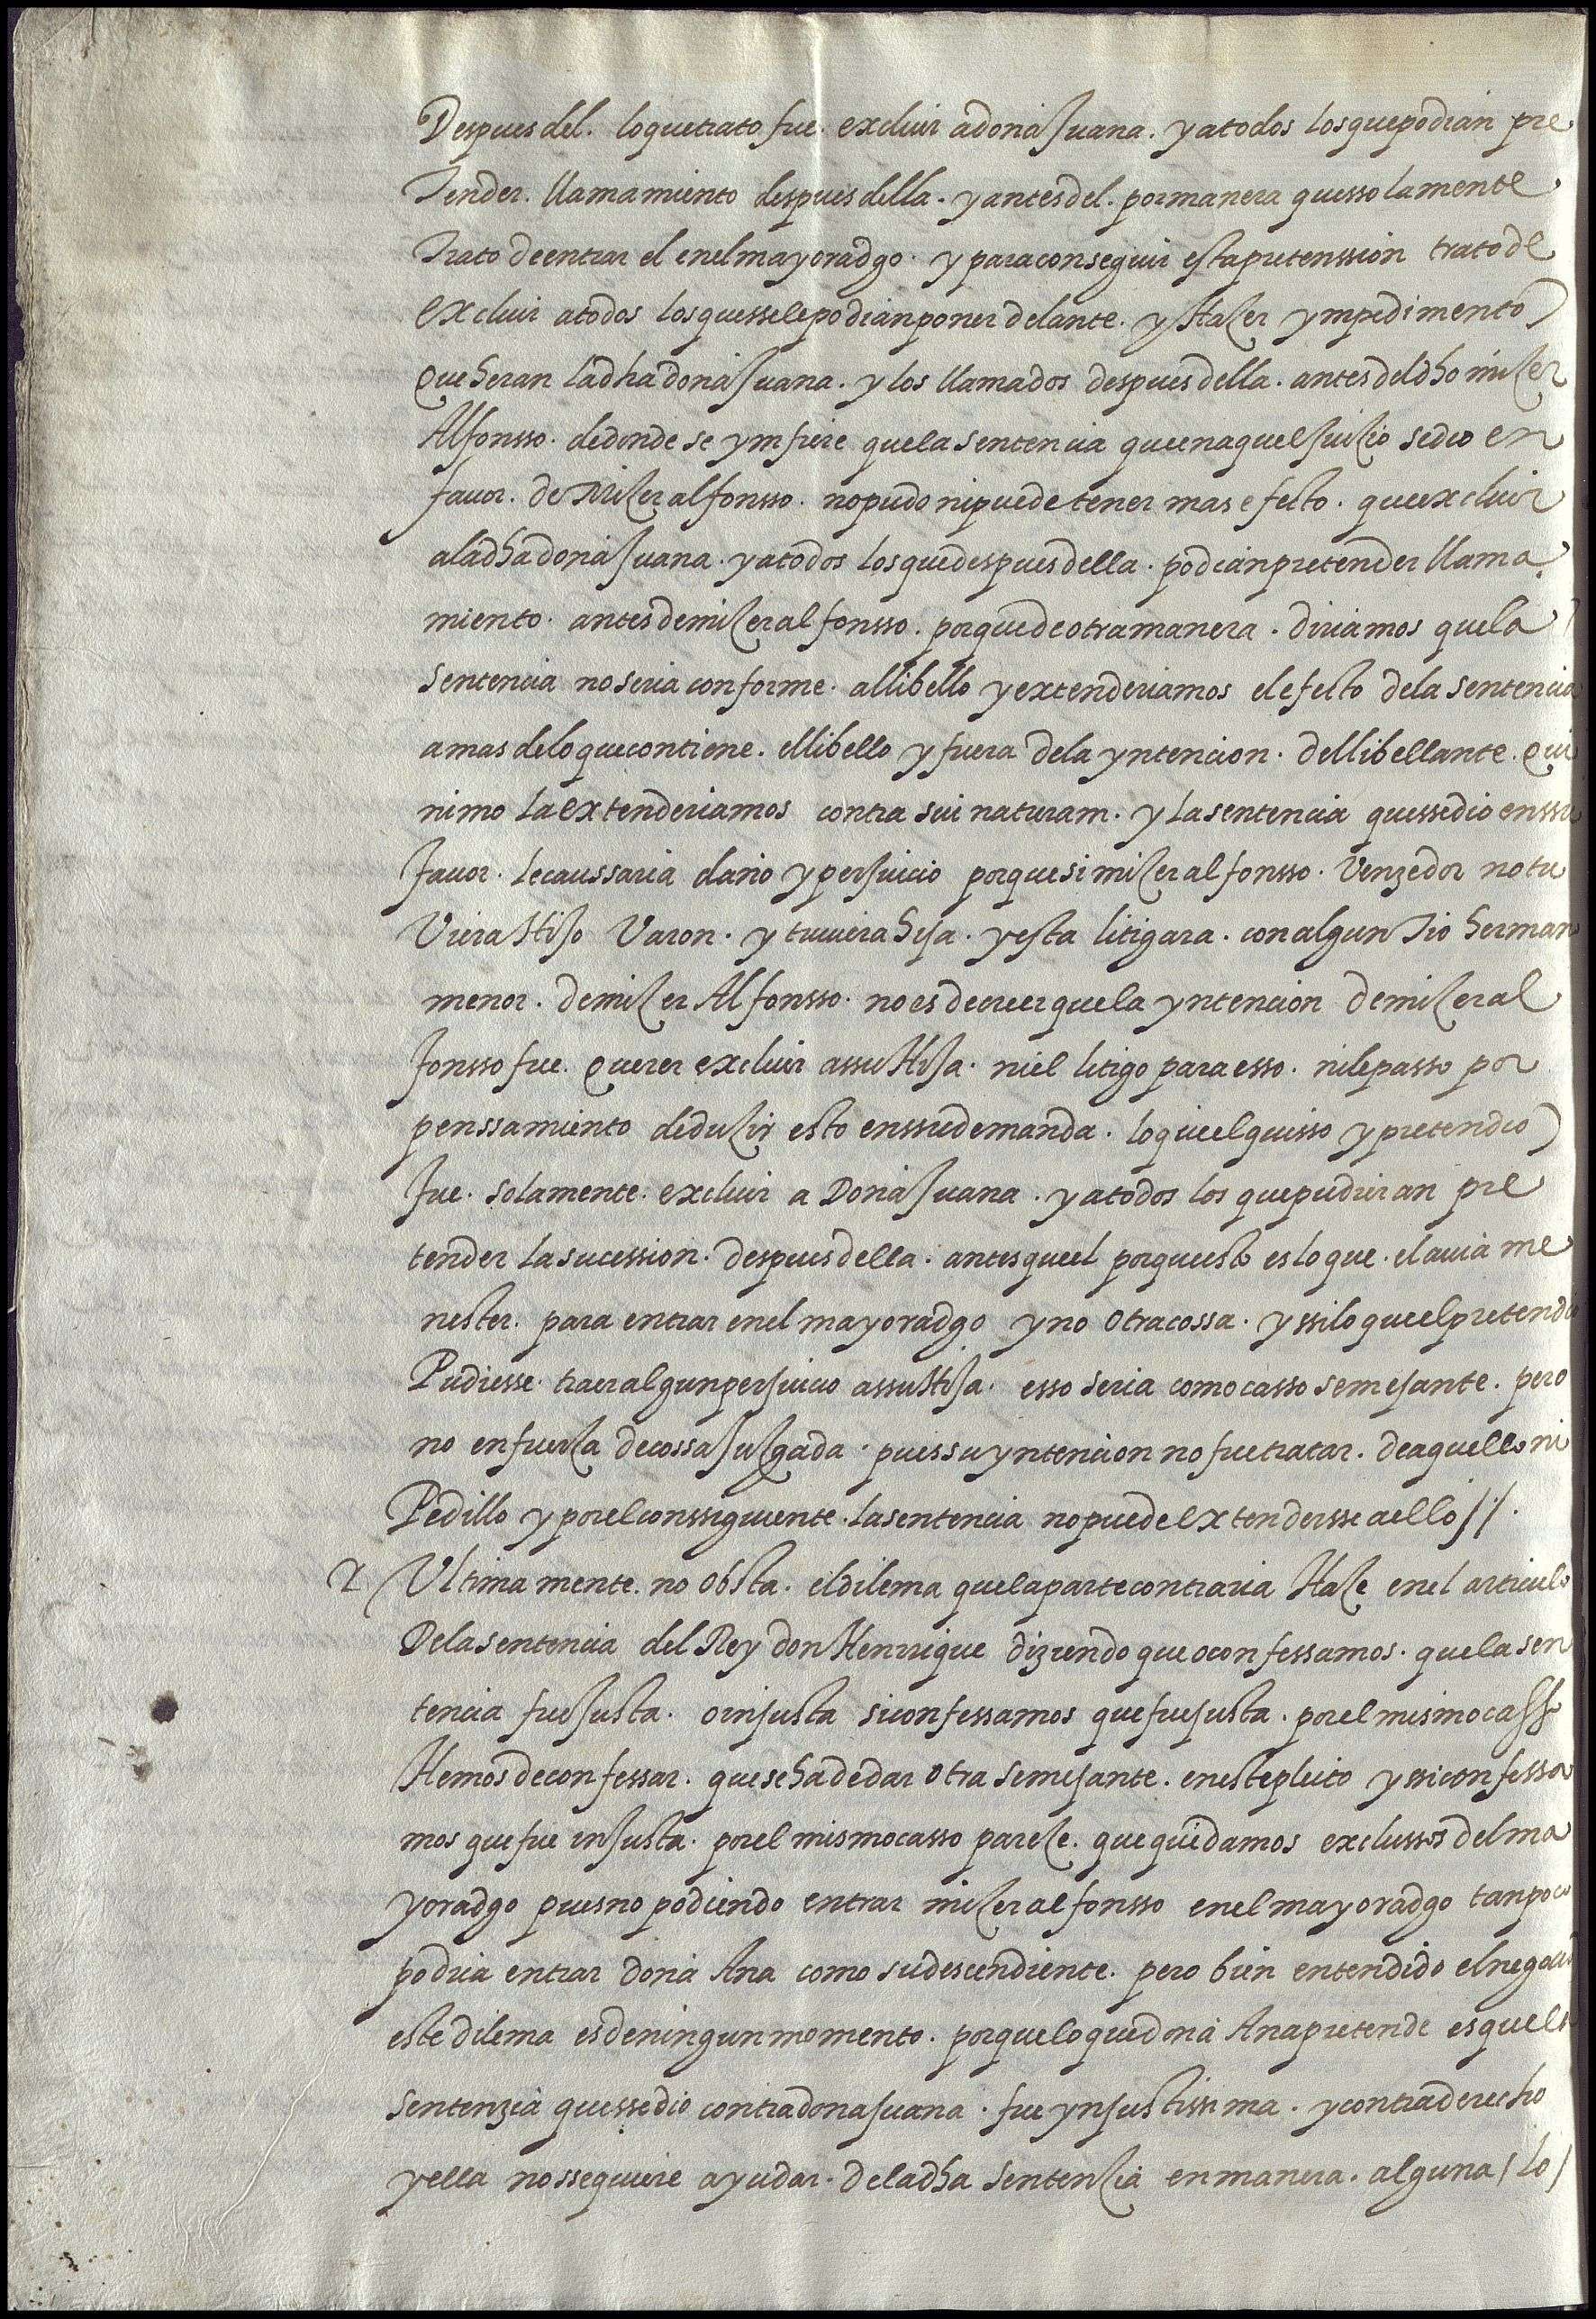 Despues del. lo que trato fue. excluir a doña Juana. y a todos los que podian pre
tender. llamamiento despues della. y antes del. por manera quesso lamente
trato de entrar el en el mayoradgo. y para conseguir esta pretenssion trato de
excluir a todos los quesse le podian poner delante. y Hazer ympedimento
que heran la dha doña Juana. y los llamados despues della. antes del dho miçer
Alfonsso. de donde se ymfiere que la sentencia que en aquel juizio se dio en
favor. de Miçer alfonsso. no pudo ni puede tener mas efecto. que excluir
a la dha doña Juana. y a todos los que despues della. podian pretender llama
miento. antes de miçer alfonsso. porque de otra manera. diriamos que la
sentencia no seria conforme. al libello y extenderiamos el efecto de la sentencia
a mas de lo que contiene. el libello y fuera de la yntencion. del libellante. qui
nimo la extenderiamos contra sui naturam. y la sentencia quesse dio enssu
favor. le caussaria daño y perjuicio porque si miçer alfonsso. Venzedor no tu
Viera Hijo Varon. y tuuiera hija. y esta litigara. con algun tio herman
menor. de miçer Alfonsso. no es de creer que la yntencion de miçer al
fonsso fue. querer excluir assu Hija. ni el litigo para esso. ni le passo por
penssamiento deduzir esto enssu demanda. lo que el quisso y pretendio
fue. solamente. excluir a Doña Juana. y a todos los que pudieran pre
tender la sucession. despues della. antes que el porque esto es lo que. el auia me
nester. para entrar en el mayoradgo y no otra cossa. y ssi lo que el pretendio
Pudiesse. traer algun perjuicio assu Hija. esso seria como casso semejante. pero
no en fuerza de cossa Juzgada. pues su yntencion no fue tratar. de aquello ni
Pedillo y por el conssiguiente. la sentencia no puede extendersse a ello //.
2 Ultima mente. no obsta. el dilema que la parte contraria Haze en el articulo
De la sentencia del Rey don Henrrique diziendo que o confessamos. que la sen
tencia fue justa. o injusta si confessamos que fue justa. por el mismo casso
Hemos de confessar. que se ha de dar otra semejante. en este pleito y ssi confessa
mos que fue injusta. por el mismo casso pareze. que quedamos exclussos del ma
yoradgo pues no podiendo entrar miçer alfonsso en el mayoradgo tanpoco
podria entrar doña Ana como su descendiente. pero bien entendido el negocio
este dilema es de ningun momento. porque lo que doña Ana pretende es que la
sentenzia quesse dio contra dona Juana. fue ynjustissima. y contra derecho
y ella nosse quiere ayudar. de la dha sentenzia en manera. alguna / lo /